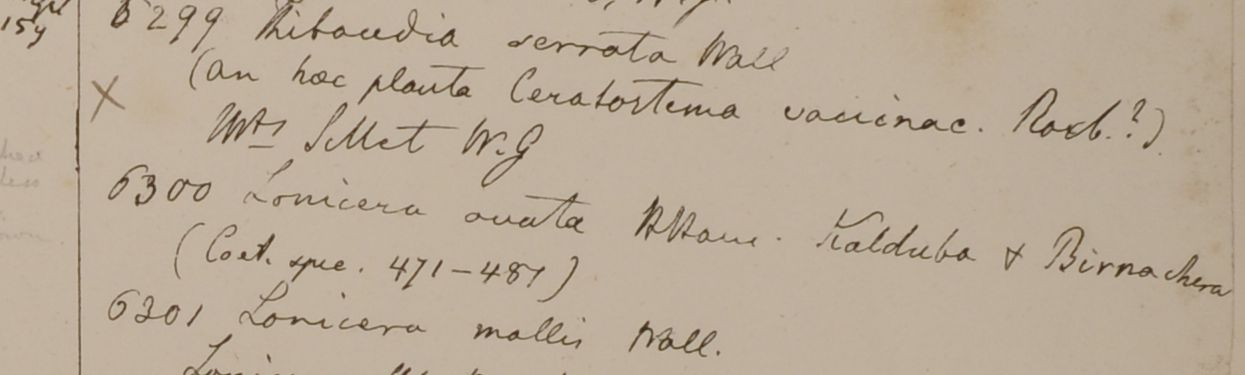 159
6299 Thibaudia serrata Wall
(an hæc planta Ceratostema vaccinac. Roxb.?)
X
Mts Sillet W.G
6300 Lonicera ovata Kalduba & Birnachera
(Coet. spec. 471-481)
6301 Lonicera mollis Wall.